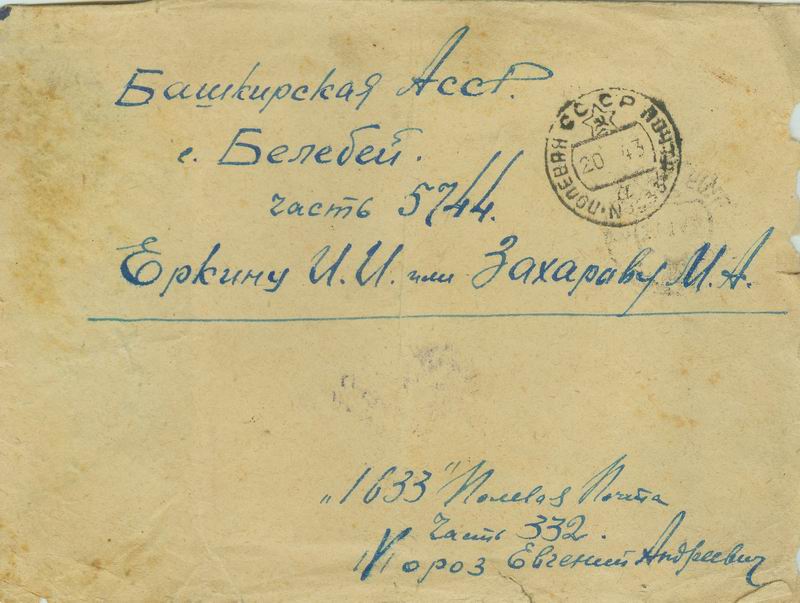 Башкирская АССР.
г. Белебей.
часть 5744.
Еркину И.И. или Захараву М.А.
СССР
ПОЛЕВАЯ ПОЧТА
20 43
„1633" Полевая Почта
Часть 332.
Мороз Евгений Андреевич